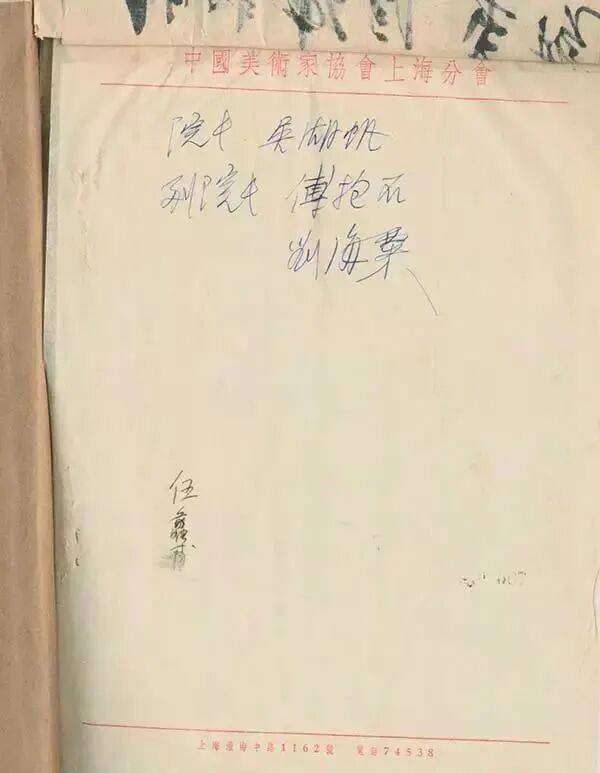 中國美術家協會上海分會
院长 吳湖帆
副院长 傅抱石
刘海粟
伍蠡甫
上海淮海中路1162號 電話74538